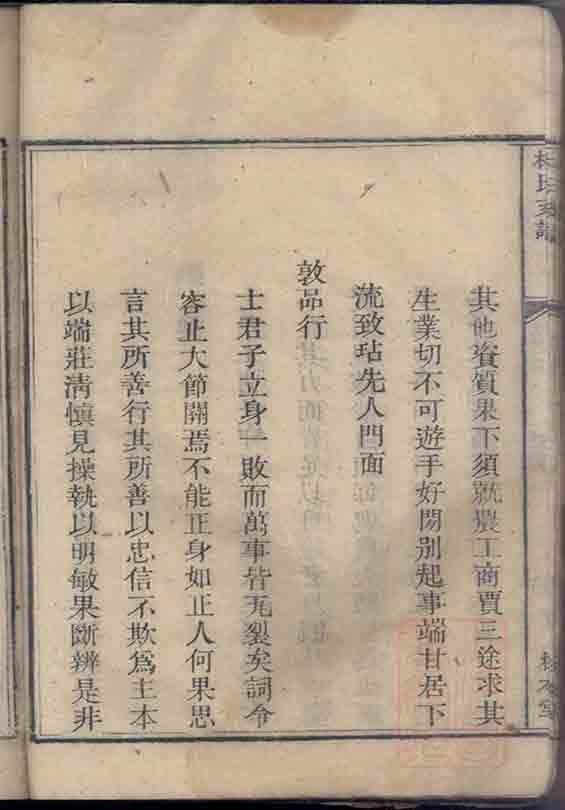 其他資質果下須就農工商賈三途求其
生業切不可遊手好閒别起事端甘居下
流致玷先人門面
敦品行
士君子立身一敗而萬事皆瓦裂矣詞令
容止大節關焉不能正身如正人何果思
言其所善行其所善以忠信不欺爲主本
以端莊清慎見操執以明敏果斷辨是非